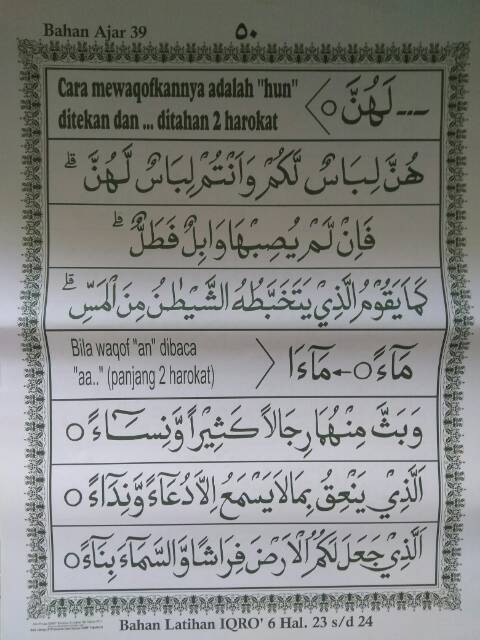 Bahan Ajar 39
٥٠
Cara mewaqofkannya adalah "hun"
ditekan dan ... ditahan 2 harokat
--- لَهُنَّ ○
هُنَّ لِبَاسٌ لَّكُمْ وَاَنْتُمْ لِبَاسٌ لَّهُنَّ ۗ
فَاِنْ لَّمْ يُصِبْهَا وَابِلٌ فَطَلٌّ ۗ
كَمَا يَقُوْمُ الَّذِيْ يَتَخَبَّطُهُ الشَّيْطٰنُ مِنَ الْمَسِّ ۗ
Bila waqof "an" dibaca
"aa.." (panjang 2 harokat)
مَآءً ○ ← مَآءَا
وَبَثَّ مِنْهُمَا رِجَالًا كَثِيْرًا وَّنِسَآءً ○
اَلَّذِيْ يَنْعِقُ بِمَا لَا يَسْمَعُ اِلَّا دُعَآءً وَّنِدَآءً ○
اَلَّذِيْ جَعَلَ لَكُمُ الْاَرْضَ فِرَاشًا وَّالسَّمَآءَ بِنَآءً ○
Bahan Latihan IQRO' 6 Hal. 23 s/d 24